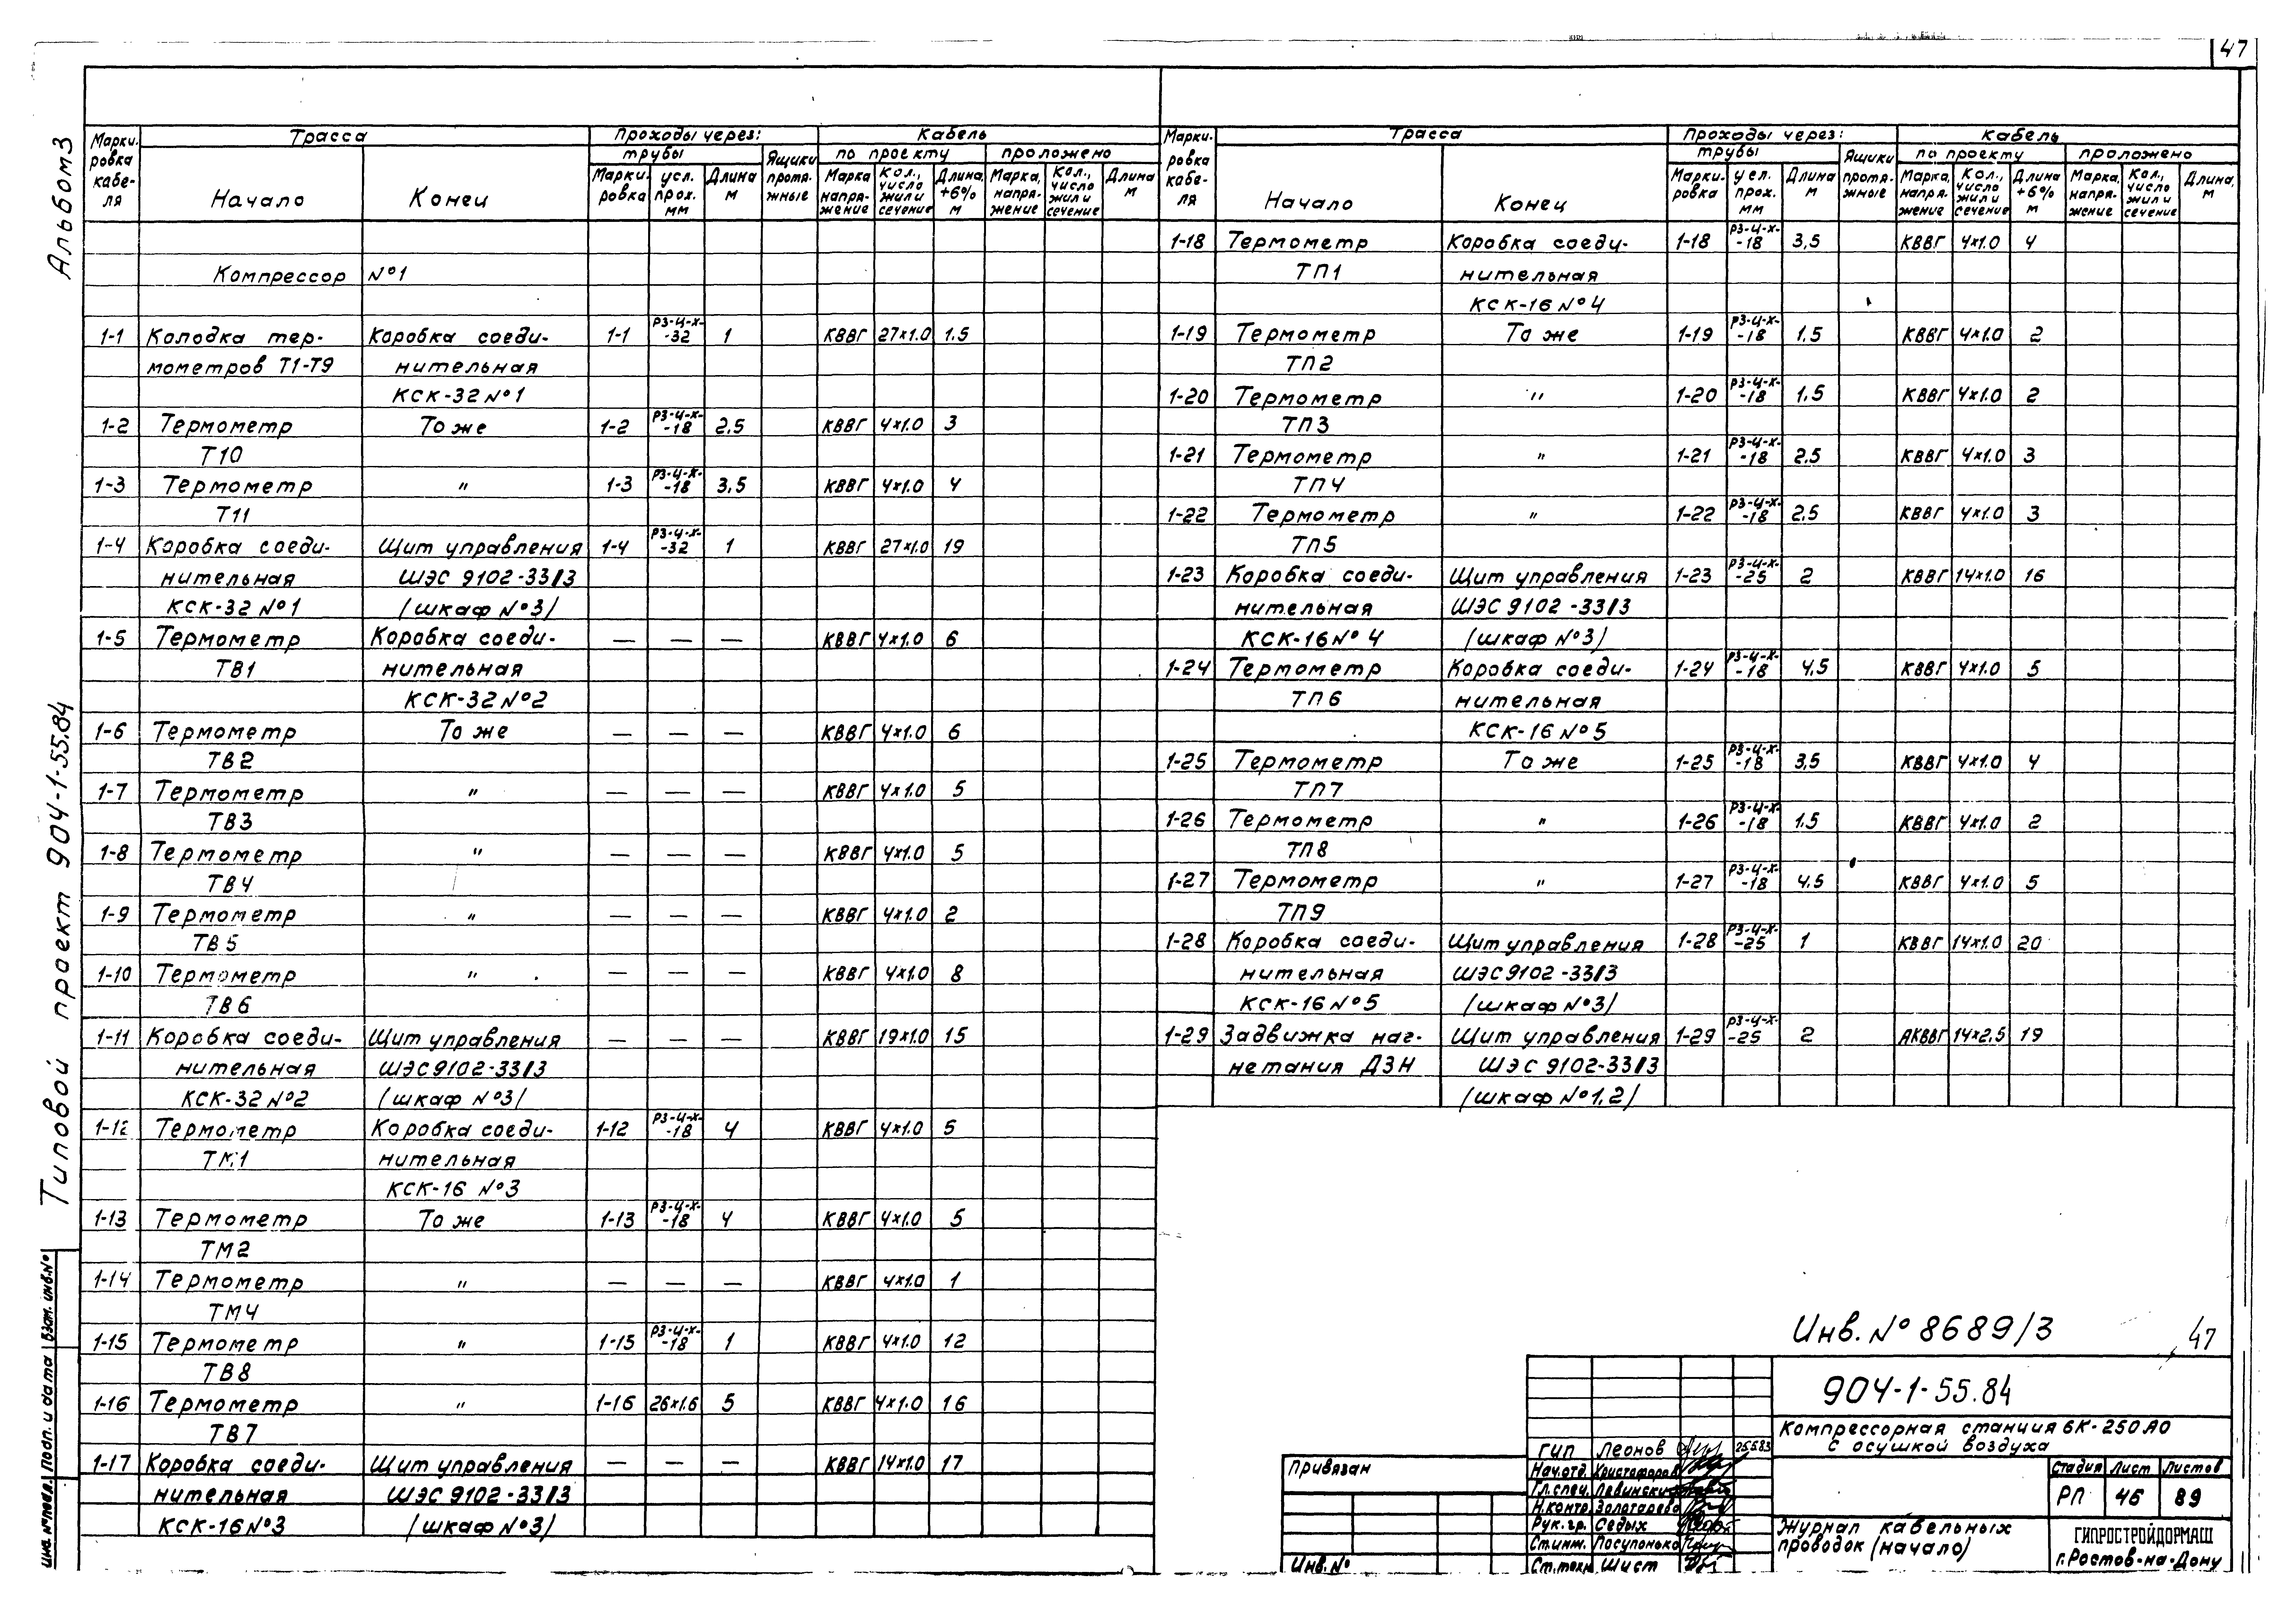 47
Альбом 3
Типовой проект 904-1-55.84
Инв. № подл. Подп. и дата Взам. инв. №
Марки- ровка кабе- ля | Трасса | Проходы через: | Кабель
трубы | Ящики протя- жные | по проекту | проложено
Начало | Конец | Марки- ровка | усл. прох. мм | Длина м | Марка напря- жение | Кол., число жил и сечение | Длина +6% м | Марка, напря- жение | Кол., число жил и сечение | Длина м
Компрессор №1
1-1 Колодка тер- Коробка соеди- 1-1 РЗ-Ц-Х- -32 1 КВВГ 27х1.0 1.5
мометров Т1-Т9 нительная
КСК-32 №1
1-2 Термометр То же 1-2 РЗ-Ц-Х- -18 2.5 КВВГ 4х1.0 3
Т10
1-3 Термометр " 1-3 РЗ-Ц-Х- -18 3,5 КВВГ 4х1.0 4
Т11
1-4 Коробка соеди- Щит управления 1-4 РЗ-Ц-Х- -32 1 КВВГ 27х1.0 19
нительная ШЭС 9102-33/3
КСК-32 №1 /шкаф №3/
1-5 Термометр Коробка соеди- — — — КВВГ 4х1.0 6
ТВ1 нительная
КСК-32 №2
1-6 Термометр То же — — — КВВГ 4х1.0 6
ТВ2
1-7 Термометр " — — — КВВГ 4х1.0 5
ТВ3
1-8 Термометр " — — — КВВГ 4х1.0 5
ТВ4
1-9 Термометр " — — — КВВГ 4х1.0 2
ТВ5
1-10 Термометр " — — — КВВГ 4х1.0 8
ТВ6
1-11 Коробка соеди- Щит управления — — — КВВГ 19х1.0 15
нительная ШЭС 9102-33/3
КСК-32 №2 /шкаф №3/
1-12 Термометр Коробка соеди- 1-12 РЗ-Ц-Х- -18 4 КВВГ 4х1.0 5
ТМ1 нительная
КСК-16 №3
1-13 Термометр То же 1-13 РЗ-Ц-Х- -18 4 КВВГ 4х1.0 5
ТМ2
1-14 Термометр " — — — КВВГ 4х1.0 1
ТМ4
1-15 Термометр " 1-15 РЗ-Ц-Х- -18 1 КВВГ 4х1.0 12
ТВ8
1-16 Термометр " 1-16 26х1.6 5 КВВГ 4х1.0 16
ТВ7
1-17 Коробка соеди- Щит управления — — — КВВГ 14х1.0 17
нительная ШЭС 9102-33/3
КСК-16 №3 /шкаф №3/
Марки- ровка кабе- ля | Трасса | Проходы через: | Кабель
трубы | Ящики протя- жные | по проекту | проложено
Начало | Конец | Марки- ровка | усл. прох. мм | Длина м | Марка, напря- жение | Кол., число жил и сечение | Длина +6% м | Марка, напря- жение | Кол., число жил и сечение | Длина, м
1-18 Термометр Коробка соеди- 1-18 РЗ-Ц-Х- -18 3,5 КВВГ 4х1.0 4
ТП1 нительная
КСК-16 №4
1-19 Термометр То же 1-19 РЗ-Ц-Х- -18 1,5 КВВГ 4х1.0 2
ТП2
1-20 Термометр " 1-20 РЗ-Ц-Х- -18 1,5 КВВГ 4х1.0 2
ТП3
1-21 Термометр " 1-21 РЗ-Ц-Х- -18 2.5 КВВГ 4х1.0 3
ТП4
1-22 Термометр " 1-22 РЗ-Ц-Х- -18 2.5 КВВГ 4х1.0 3
ТП5
1-23 Коробка соеди- Щит управления 1-23 РЗ-Ц-Х- -25 2 КВВГ 14х1.0 16
нительная ШЭС 9102-33/3
КСК-16 № 4 /шкаф №3/
1-24 Термометр Коробка соеди- 1-24 РЗ-Ц-Х- -18 4,5 КВВГ 4х1.0 5
ТП6 нительная
КСК-16 №5
1-25 Термометр То же 1-25 РЗ-Ц-Х- -18 3,5 КВВГ 4х1.0 4
ТП7
1-26 Термометр " 1-26 РЗ-Ц-Х- -18 1.5 КВВГ 4х1.0 2
ТП8
1-27 Термометр " 1-27 РЗ-Ц-Х- -18 4.5 КВВГ 4х1.0 5
ТП9
1-28 Коробка соеди- Щит управления 1-28 РЗ-Ц-Х- -25 1 КВВГ 14х1.0 20
нительная ШЭС 9102-33/3
КСК-16 №5 /шкаф №3/
1-29 Задвижка наг- Щит управления 1-29 РЗ-Ц-Х- -25 2 АКВВГ 14х2,5 19
нетания ДЗН ШЭС 9102-33/3
/шкаф №1,2/
Инв. № 8689/3 47
904-1-55.84
Компрессорная станция 6К-250А0
с осушкой воздуха
Привязан
Инв. №
ГИП Леонов 25.5.83
Нач.отд. Христофоров
Гл.спец. Левинский
Н.контр. Золотарева
Рук.гр. Седых
Ст.инж. Посупонько
Ст.техн. Шист
Стадия Лист Листов
РП 46 89
Журнал кабельных
проводок (начало)
ГИПРОСТРОЙДОРМАШ
г.Ростов-на-Дону